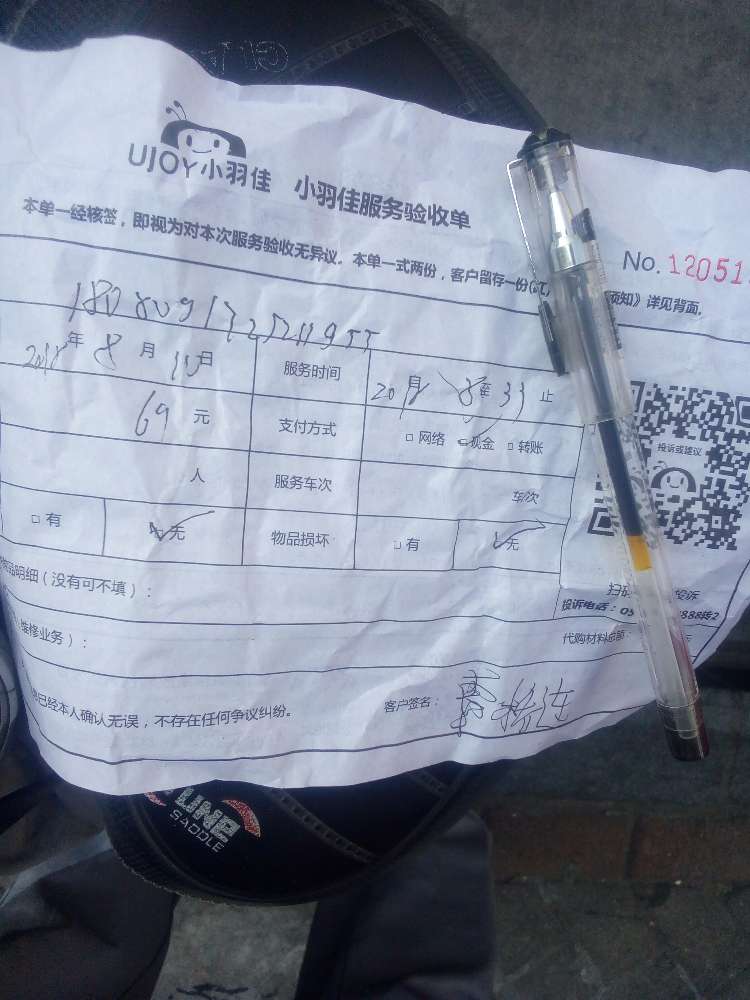 UJOY小羽佳 小羽佳服务验收单
No. 12051
本单一经核签,即视为对本次服务验收无异议。本单一式两份,客户留存一份 须知》详见背面。
2018年8月10日 服务时间 止
69元 支付方式 □网络 □现金 □转账
人 服务车次 车/次
□有 □无 物品损坏 □有 □无
投诉或建议
明细(没有可不填):
扫 投诉
维修业务):
投诉电话:05 888转2
代购材料总额:
已经本人确认无误,不存在任何争议纠纷。
客户签名:
UNE
SADDLE